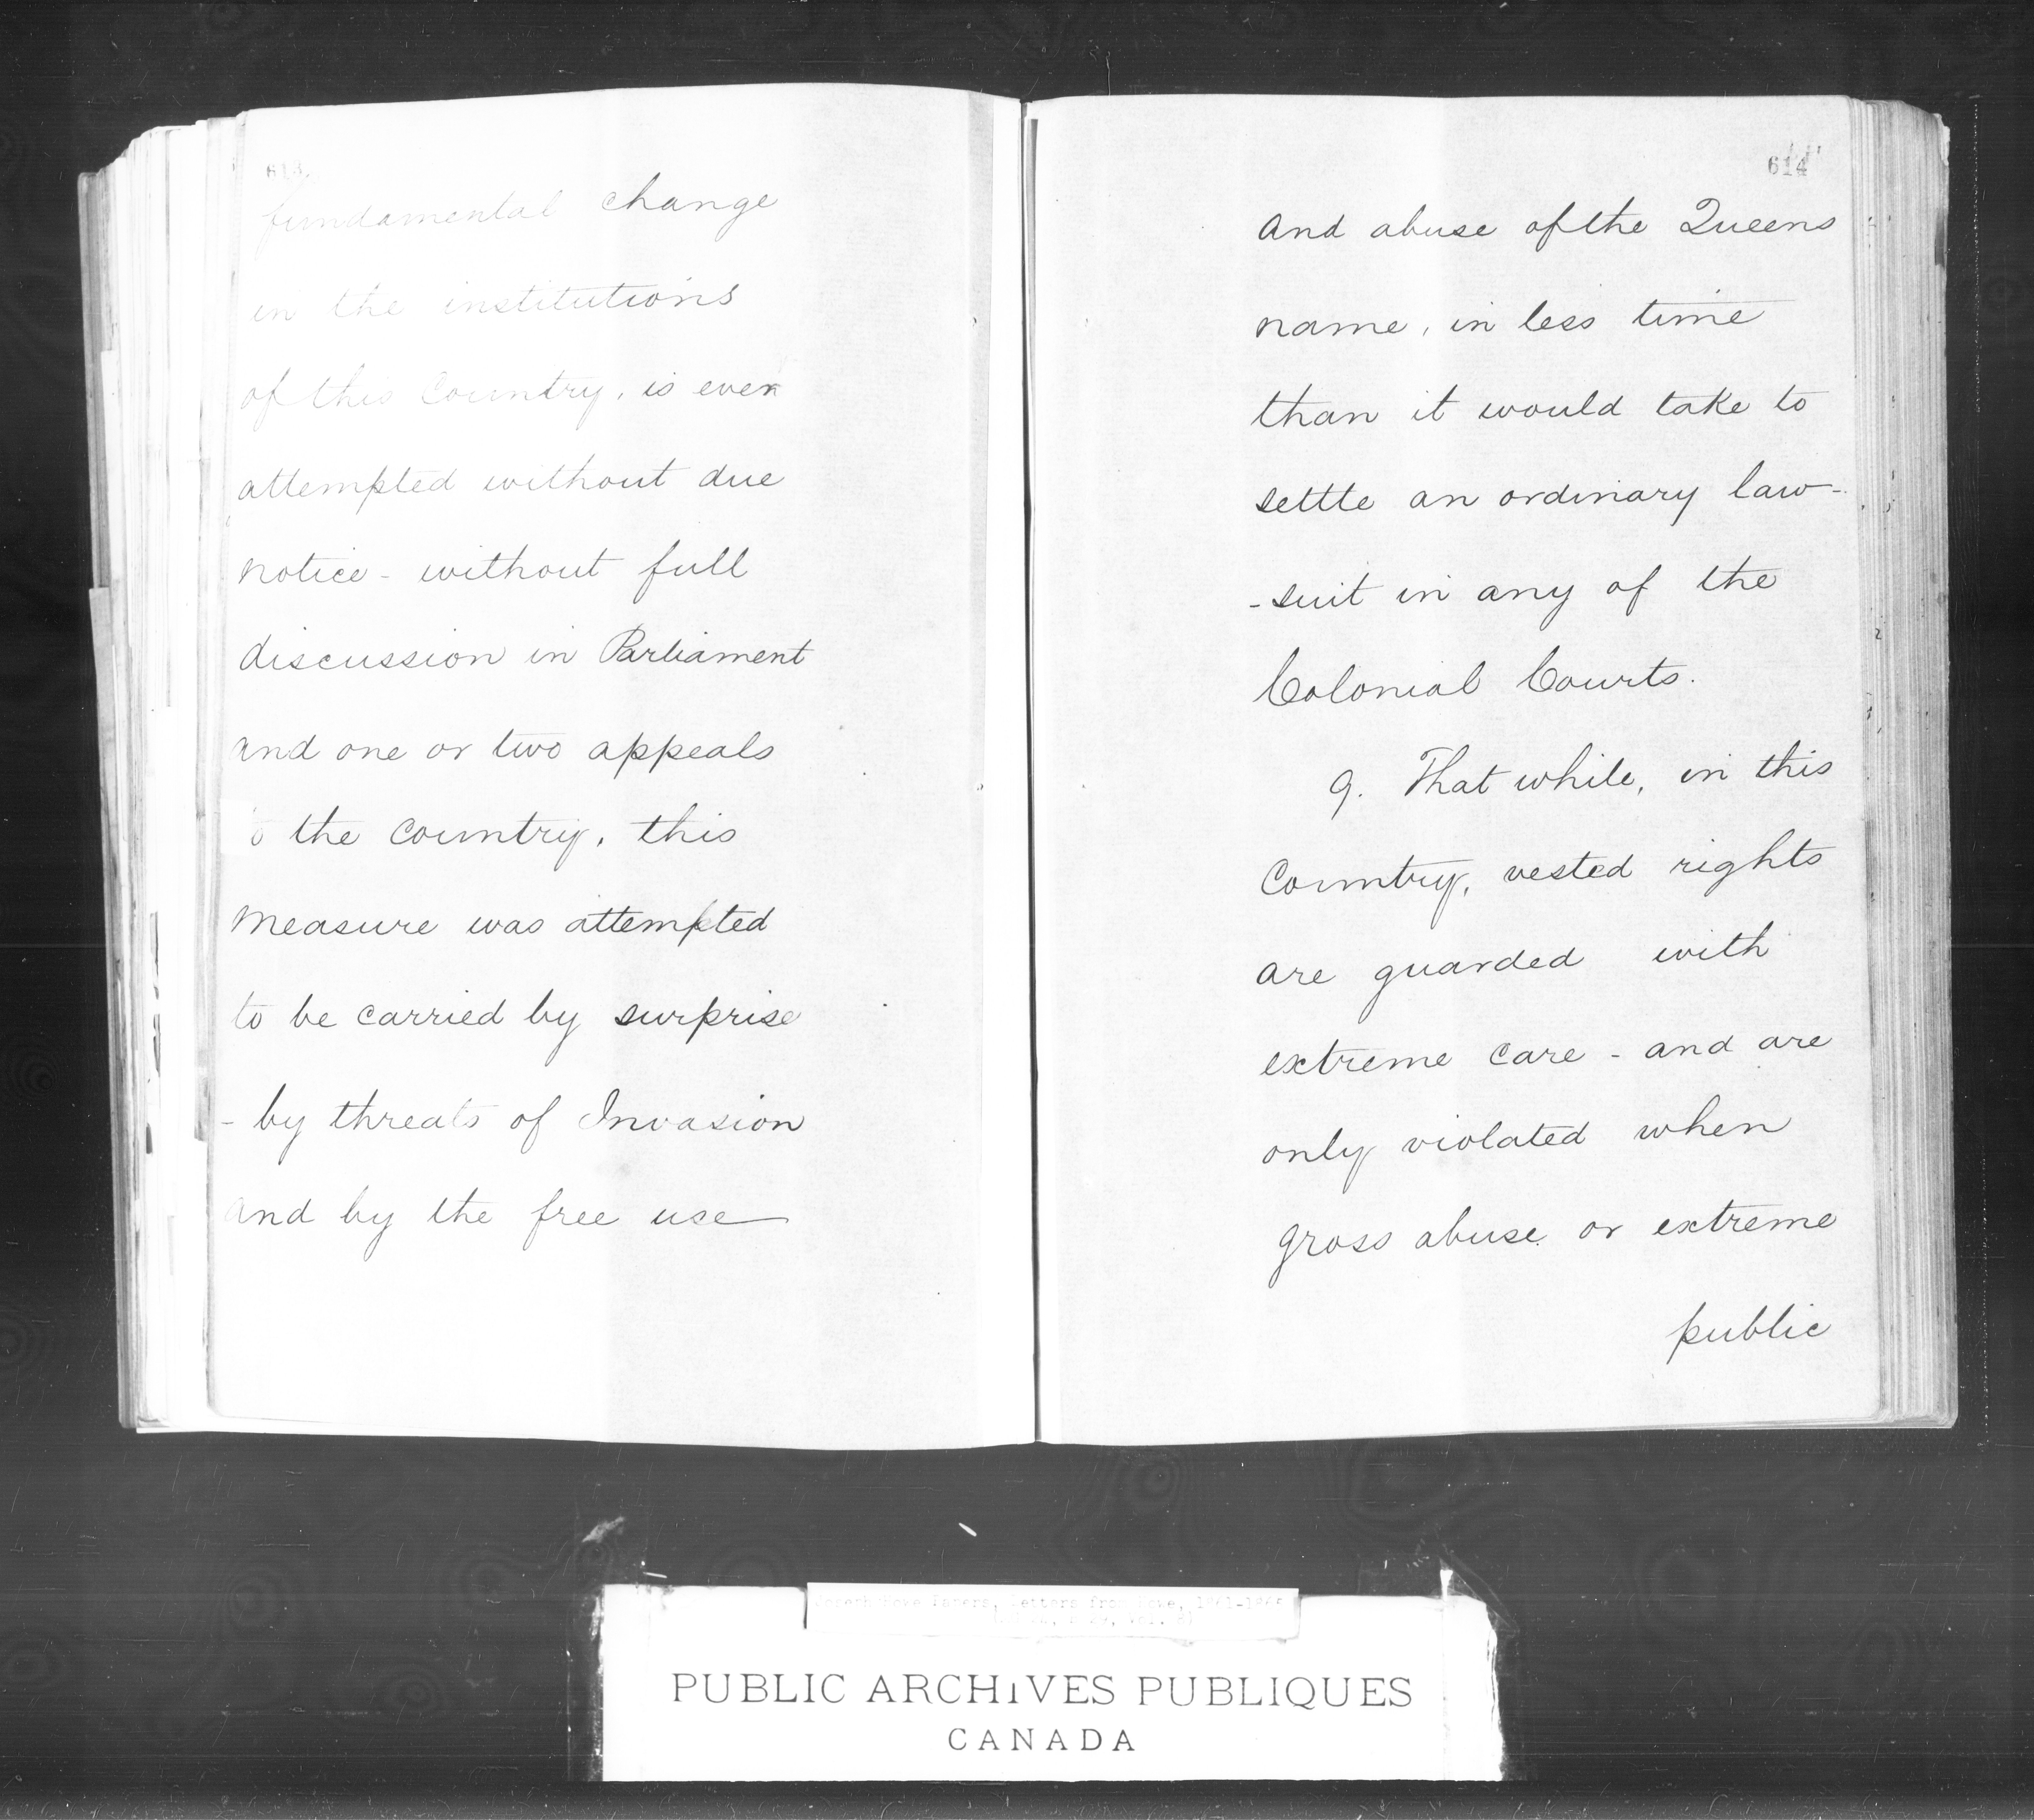 613
fundamental change
in the institutions
of this Country, is ever
attempted without due
notice - without full
discussion in Parliament
and one or two appeals
o the Country, this
measure was attempted
to be carried by surprise
- by threats of Invasion
and by the free use
614
and abuse of the Queens
name, in less time
than it would take to
settle an ordinary law-
-suit in any of the
Colonial Courts.
9. That while, in this
Country, vested rights
are guarded with
extreme care - and are
only violated when
gross abuse or extreme
public
Joseph Howe Papers, Letters from Howe, 1861-186
PUBLIC ARCHIVES PUBLIQUES
CANADA